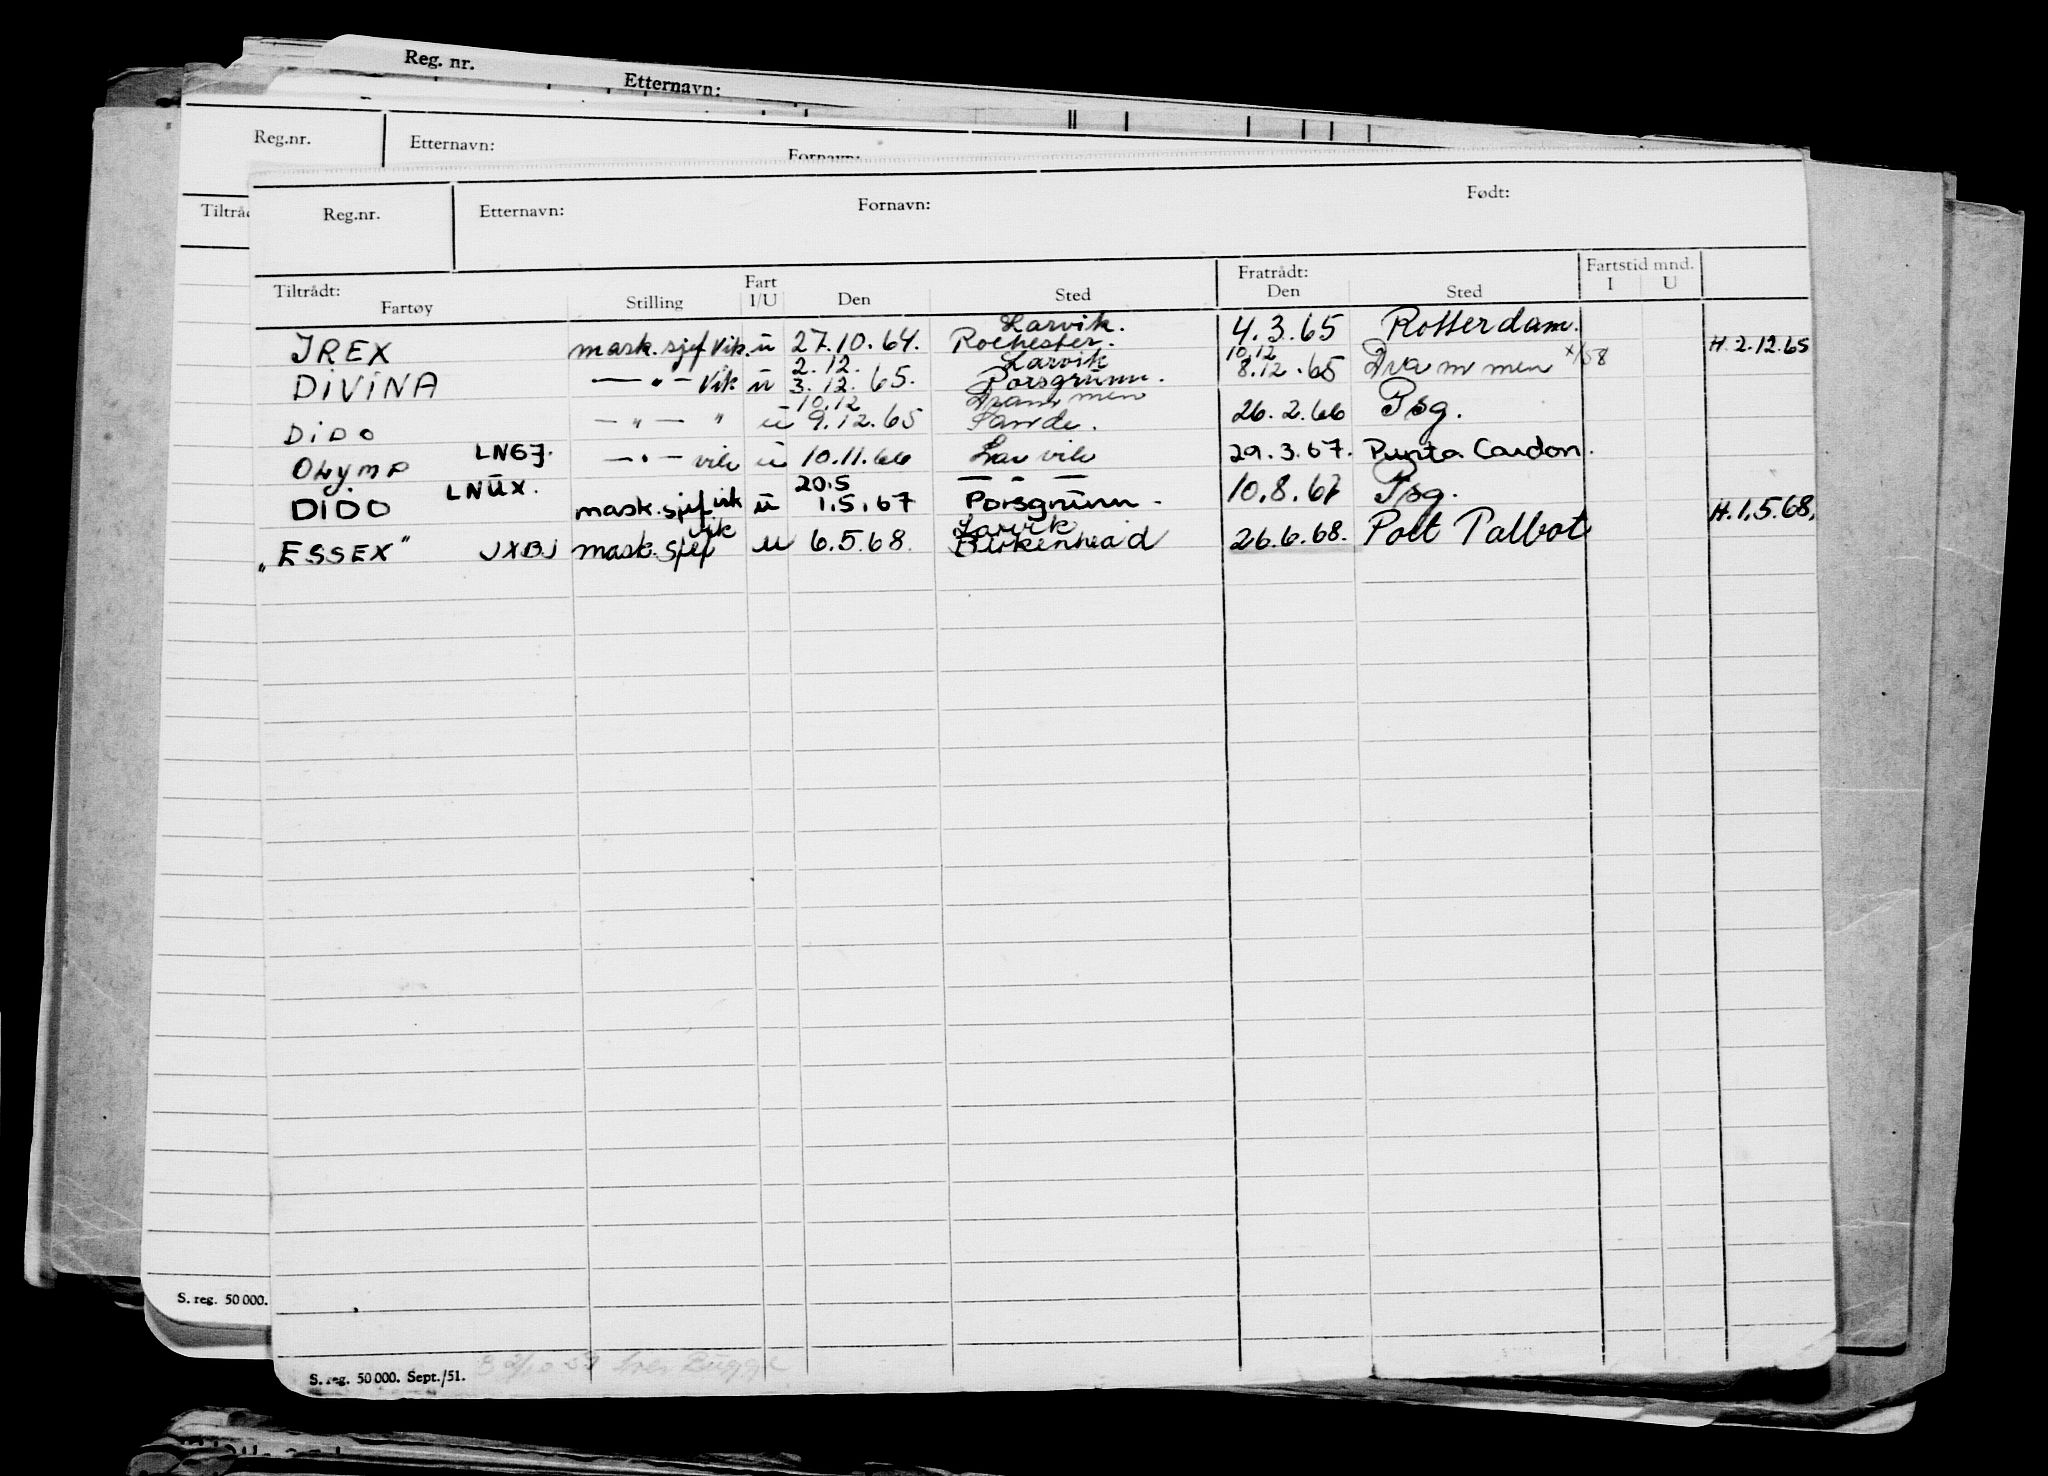 Reg. nr.
Etternavn:
Reg.nr. Etternavn: Fornavn:
Reg.nr. Etternavn: Fornavn: Født:
Tiltråd
Tiltrådt: Fart Fratrådt: Fartstid mnd.
Fartøy Stilling I/U Den Sted Den Sted I U
Larvik.
IREX mask. sjef Vik. u 27.10.64. Rochester. 4.3.65 Rotterdam. H. 2.12.65
2.12. Larvik 10.12
DIVINA — " — Vik u 3.12.65. Porsgrunn. 8.12.65 Drammen x/58
10.12 Drammen
DIDO — " — " u 9.12.65 Sande. 26.2.66 Psg.
OLYMP LNGJ. — " — vik u 10.11.66 Larvik 29.3.67. Punta Cardon.
20.5 — — —
DIDO LNUX. mask. sjef vik u 1.5.67 Porsgrunn. 10.8.67 Psg. H. 1.5.68.
vik Larvik
"ESSEX" JXBJ mask. sjef u 6.5.68. Birkenhead 26.6.68. Port Talbot
S. reg. 50 000.
S. reg. 50 000. Sept./51.